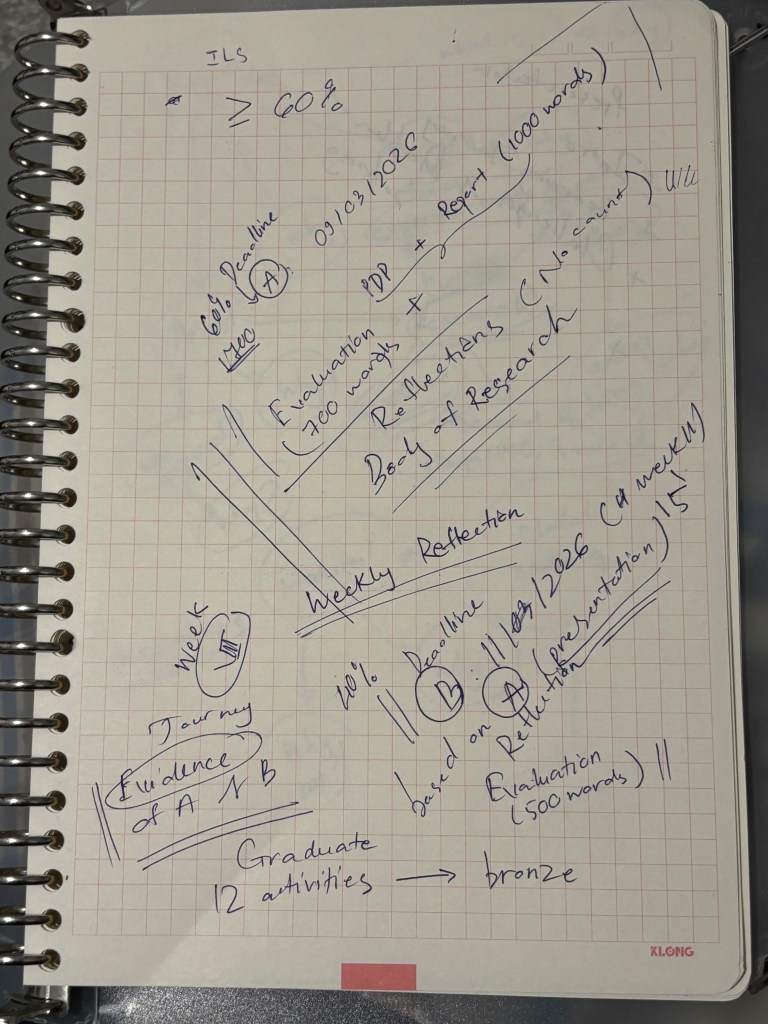 ILS
* ≥ 60%
60% Deadline (A) 09/03/2026
1700
PDP + Report (1000 words)
+
Evaluation
(700 words
Reflections (No count)
Body of Research
Weekly Reflection
Week VIII
40% Deadline (B) : 11/03/2026 (11 week!!)
based on (A) (presentation) 15!
Reflection
Journey
Evidence
of A & B
Evaluation
(500 words)
Graduate
12 activities → bronze
KLONG